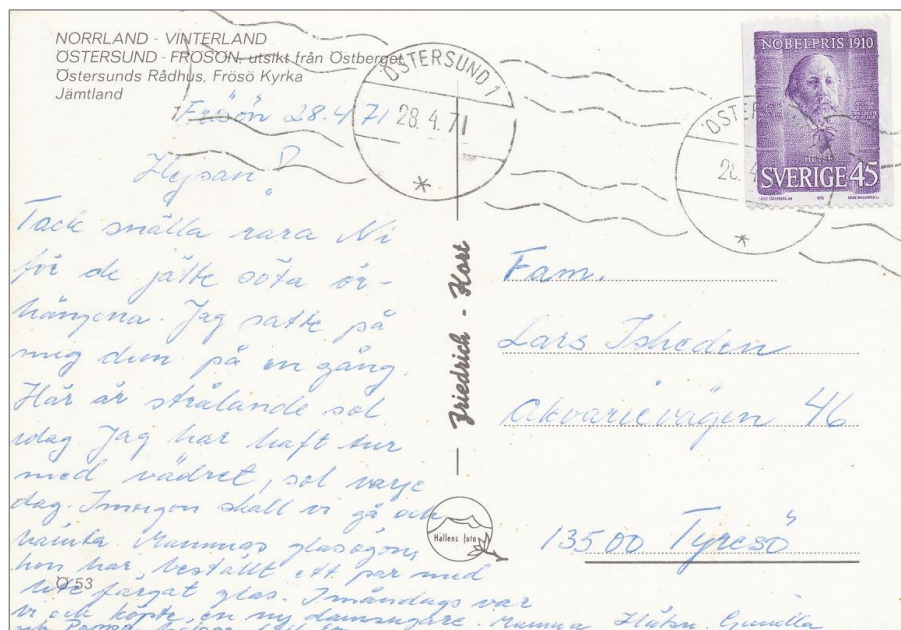 NORRLAND - VINTERLAND
ÖSTERSUND - FRÖSÖN, utsikt från Östberget
Östersunds Rådhus, Frösö Kyrka
Jämtland
ÖSTERSUND 1
28.4.71
NOBELPRIS 1910
SVERIGE 45
Frösön 28.4/71
Hejsan!
Tack snälla rara Ni
för de jätte söta ör-
hängena. Jag satte på
mig dem på en gång.
Här är strålande sol
idag Jag har haft tur
med vädret, sol varje
dag. Imorgon skall vi gå och
hämta Mammas glasögon,
hon har beställt ett par med
lite färgat glas. Imåndags var
vi och köpte en ny dammsugare. Mamma
och Pappa
Ö 53
Friedrich - Kort
Hallens foto
Fam.
Lars Isheden
Akvarievägen 46
13500 Tyresö